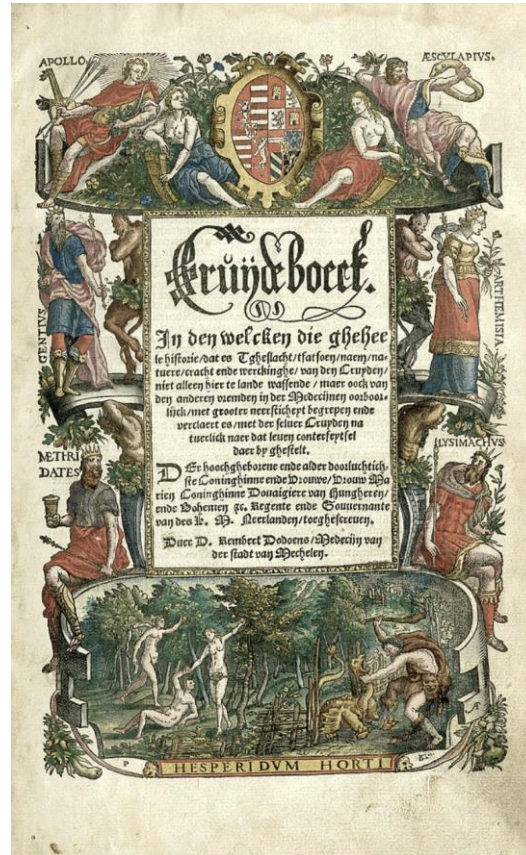 APOLLO.
ÆSCULAPIUS.
GENTIUS
ARTHEMISIA
METHRI
DATES
LYSIMACHVS
Cruÿdeboeck.
In den welcken die gheheele
le historie/dat es Tgheslacht/tfatsoen/naem/na-
tuere/cracht ende werckinghe/van den Cruyden/
niet alleen hier te lande wassende/maer oock van
den anderen vremden in der Medecijnen oorboor-
lijck/met grooter neersticheyt begrepen ende
verclaert es/met der seluer Cruyden na
tuerlick naer dat leuen conterfeytsel
daer by ghestelt.
DEr hoochgheborene ende alder doorluchtich-
ste Coninghinne ende Vrouwe/Vrouw Ma
rien Coninghinne Douaigiere van Hungheren/
ende Bohemen ꝛc. Regente ende Gouuernante
van des K. M. Neerlanden/toegheschreuen.
Duer D. Rembert Dodoens/Medecijn van
der stadt van Mechelen.
P B
HESPERIDVM HORTI